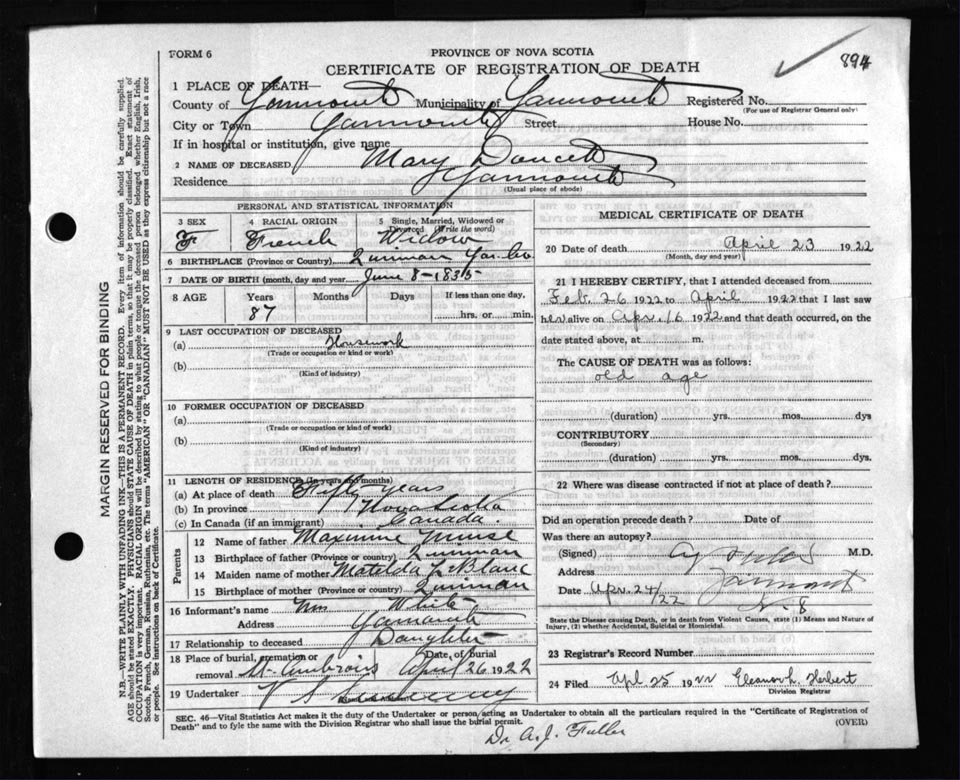 FORM 6
PROVINCE OF NOVA SCOTIA
CERTIFICATE OF REGISTRATION OF DEATH
894
1 PLACE OF DEATH—
County of Yarmouth Municipality of Yarmouth Registered No.
(For use of Registrar General only)
City or Town Yarmouth Street House No.
If in hospital or institution, give name
2 NAME OF DECEASED Mary Doucett
Residence Yarmouth
(Usual place of abode)
PERSONAL AND STATISTICAL INFORMATION
3 SEX 4 RACIAL ORIGIN 5 Single, Married, Widowed or Divorced (Write the word)
F French Widow
6 BIRTHPLACE (Province or Country) Quinan Yar. Co
7 DATE OF BIRTH (month, day and year) June 8-1835
8 AGE Years Months Days If less than one day,
87 hrs. or min.
9 LAST OCCUPATION OF DECEASED
(a) Housework
(Trade or occupation or kind or work)
(b)
(Kind of industry)
10 FORMER OCCUPATION OF DECEASED
(a)
(Trade or occupation or kind of work)
(b)
(Kind of industry)
11 LENGTH OF RESIDENCE (In years and months)
(a) At place of death Fifty years
(b) In province Nova Scotia
(c) In Canada (if an immigrant) Canada.
Parents
12 Name of father Maximine Muise
13 Birthplace of father (Province or country) Quinan
14 Maiden name of mother Matilda LeBlanc
15 Birthplace of mother (Province or country) Quinan
16 Informant's name Mrs White
Address Yarmouth
17 Relationship to deceased Daughter
18 Place of burial, cremation or removal St. Ambrois Date of burial April 26 1922
19 Undertaker V S Sweeney
MEDICAL CERTIFICATE OF DEATH
20 Date of death April 23 1922
(Month, day and year)
21 I HEREBY CERTIFY, that I attended deceased from
Feb. 26 1922 to April 1922 that I last saw
h(er) alive on Apr. 16 1922 and that death occurred, on the
date stated above, at m.
The CAUSE OF DEATH was as follows:
old age
(duration) yrs. mos. dys
CONTRIBUTORY
(Secondary)
(duration) yrs. mos. dys.
22 Where was disease contracted if not at place of death?
Did an operation precede death? Date of
Was there an autopsy?
(Signed) M.D.
Address Yarmouth
N.S
Date Apr. 24/22
State the Disease causing Death, or in death from Violent Causes, state (1) Means and Nature of Injury, (2) whether Accidental, Suicidal or Homicidal.
23 Registrar's Record Number
24 Filed Apl 25 1922 Eleanor L. Herbert
Division Registrar
SEC. 46—Vital Statistics Act makes it the duty of the Undertaker or person acting as Undertaker to obtain all the particulars required in the "Certificate of Registration of
Death" and to fyle the same with the Division Registrar who shall issue the burial permit. (OVER)
Dr A.J. Fuller
MARGIN RESERVED FOR BINDING
N.B.—WRITE PLAINLY WITH UNFADING INK—THIS IS A PERMANENT RECORD. Every item of information should be carefully supplied.
AGE should be stated EXACTLY. PHYSICIANS should STATE CAUSE OF DEATH in plain terms, so that it may be properly classified. Exact statement of
OCCUPATION is very important. RACIAL ORIGIN will be described by stating to what people or tongue the deceased person belonged whether English, Irish,
Scotch, French, German, Russian, Ruthenian, etc. The terms "AMERICAN" OR "CANADIAN" MUST NOT BE USED as they express citizenship but not a race
or people. See instructions on back of Certificate.